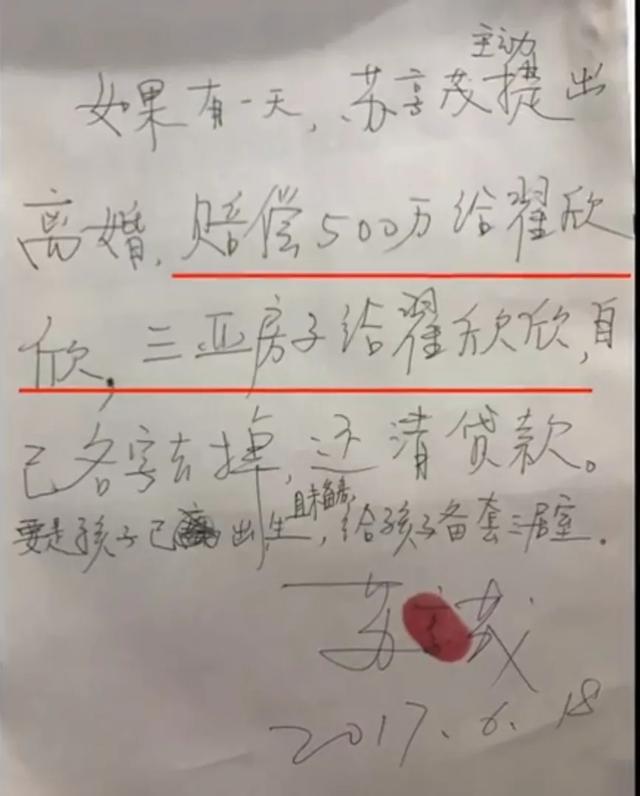 主动
如果有一天,苏享茂提出
离婚,赔偿500万给翟欣
欣,三亚房子给翟欣欣,自
己名字去掉,还清贷款。
要是孩子已出生,给孩子备套三居室.
苏享茂
2017.6.18